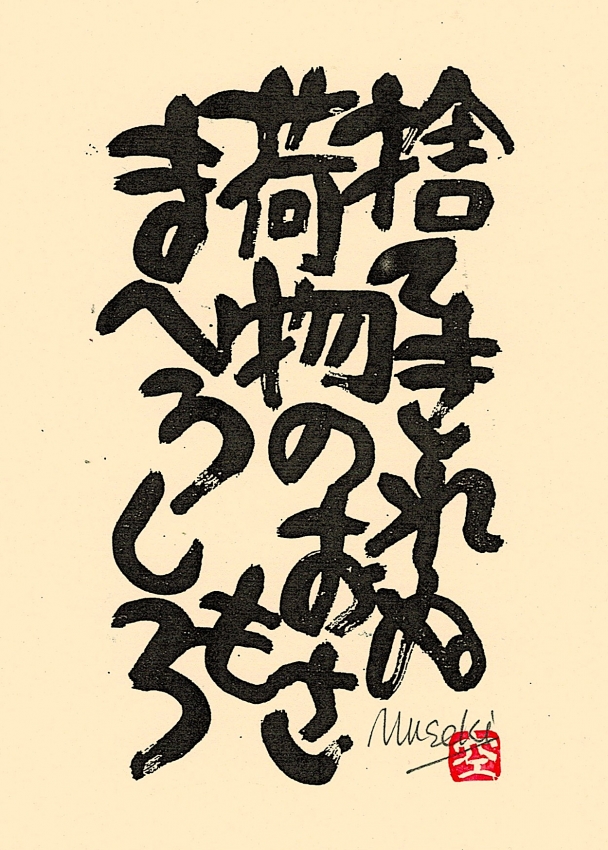 捨てきれぬ
荷物のおもさ
まへうしろ
空